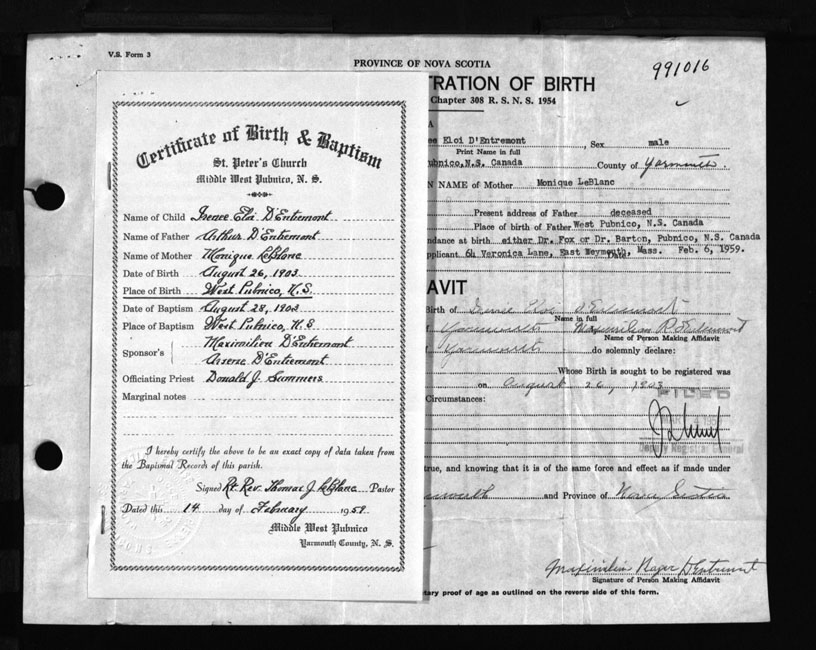 V.S. Form 3
PROVINCE OF NOVA SCOTIA
991016
TRATION OF BIRTH
Chapter 308 R. S. N. S. 1954
Certificate of Birth & Baptism
St. Peter's Church
Middle West Pubnico, N. S.
Name of Child Irenee Eloi D'Entremont
Name of Father Arthur D'Entremont
Name of Mother Monique LeBlanc
Date of Birth August 26, 1903
Place of Birth West Pubnico, N.S.
Date of Baptism August 28, 1903
Place of Baptism West Pubnico, N.S
Sponsor's Maximilien D'Entremont
Arsene D'Entremont
Officiating Priest Donald J. Summers
Marginal notes
I hereby certify the above to be an exact copy of data taken from
the Bapismal Records of this parish.
Signed Rt. Rev. Thomas J. LeBlanc Pastor
Dated this 14 day of February 1959
Middle West Pubnico
Yarmouth County, N. S.
A
ee Eloi D'Entremont , Sex male
Print Name in full
ubnico,N.S. Canada County of Yarmouth.
N NAME of Mother Monique LeBlanc
Present address of Father deceased
Place of birth of Father West Pubnico, N.S. Canada
ndance at birth either Dr. Fox or Dr. Barton, Pubnico, N.S. Canada
pplicant Veronica Lane, East Weymouth, Mass. Date Feb. 6, 1959.
AVIT
Birth of Irenee Eloi D'Entremont
Name in full
f Yarmouth Maximilien R. D'Entremont
Name of Person Making Affidavit
f Yarmouth do solemnly declare:
Whose Birth is sought to be registered was
on August 26, 1903
FILED
Circumstances:
Deputy Registrar General
true, and knowing that it is of the same force and effect as if made under
armouth and Province of Nova Scotia
Maximilien Roger D'Entremont
Signature of Person Making Affidavit
tary proof of age as outlined on the reverse side of this form.